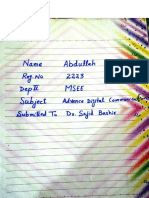 Name Abdullah
Reg.No 2223
Deptt MSEE
Subject Advance Digital Communication
Submitted To Dr. Sajid Bashir